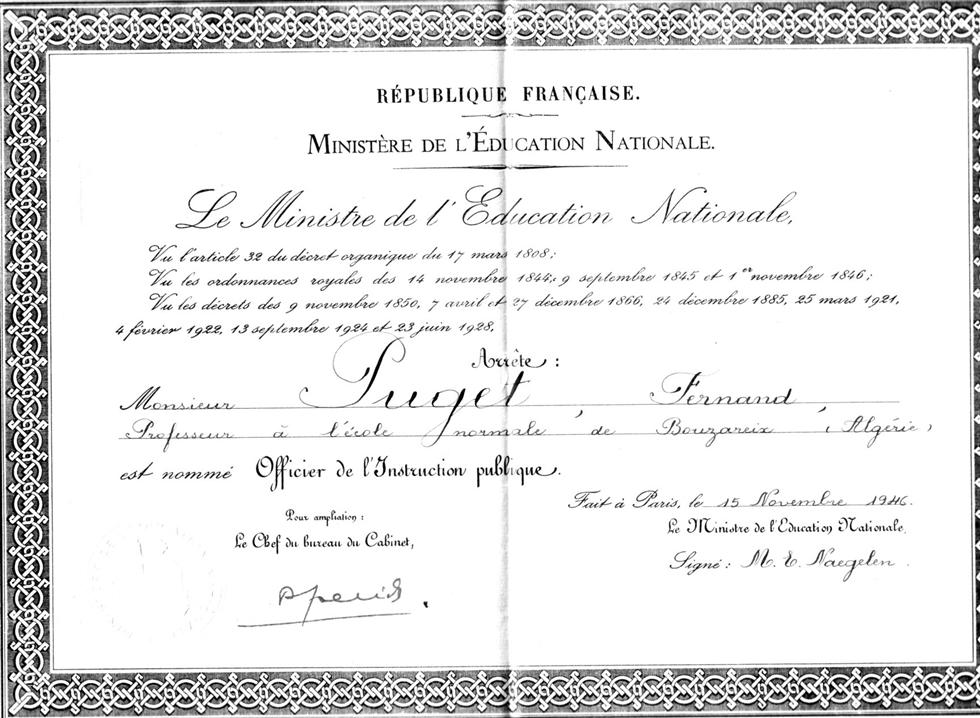 RÉPUBLIQUE FRANÇAISE.
MINISTÈRE DE L'ÉDUCATION NATIONALE.
Le Ministre de l'Education Nationale,
Vu l'article 32 du décret organique du 17 mars 1808;
Vu les ordonnances royales des 14 novembre 1844; 9 septembre 1845 et 1er novembre 1846;
Vu les décrets des 9 novembre 1850, 7 avril et 27 décembre 1866, 24 décembre 1885, 25 mars 1921,
4 février 1922, 13 septembre 1924 et 23 juin 1928,
Arrête :
Monsieur Puget, Fernand,
Professeur à l'école normale de Bouzareix (Algérie)
est nommé Officier de l'Instruction publique.
Fait à Paris, le 15 Novembre 1946.
Pour ampliation :
Le Chef du bureau du Cabinet,
Le Ministre de l'Education Nationale,
Signé : M. E. Naegelen.